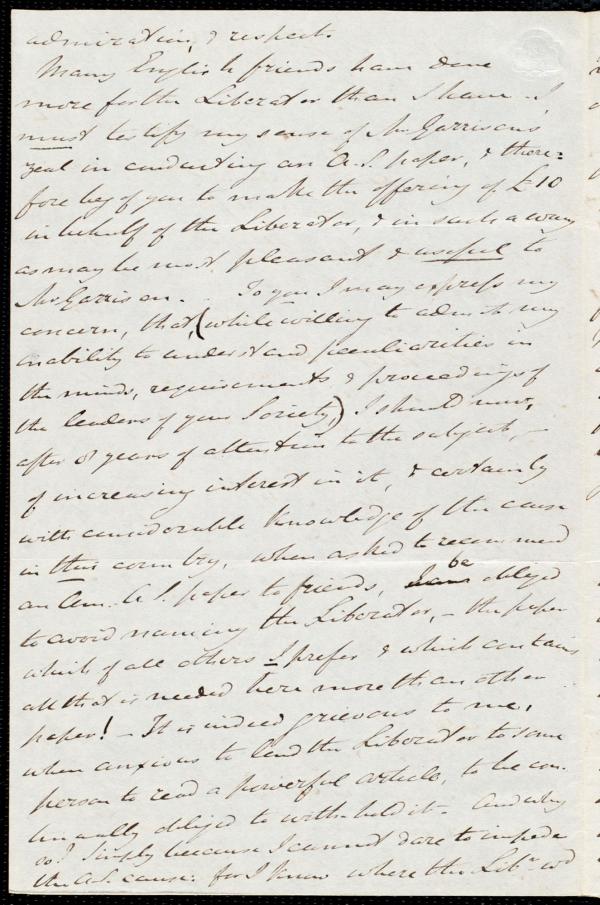 admiration, & respect.
Many English friends have done
more for the Liberator than I have – I
must testify my sense of Mr Garrison's
zeal in conducting an A.S. paper, & there=
fore beg of you to make the offering of £10
in behalf of the Liberator, & in such a way
as may be most pleasant & useful to
Mr Garrison. To you I may express my
concern, that, (while willing to admit my
inability to understand peculiarities in
the minds, requirements & proceedings of
the leaders of your Society,) I should now,
after 8 years of attention to the subject, –
of increasing interest in it, & certainly
with considerable knowledge of the cause
in this country, when asked to recommend
an Am. A.S. paper to friends, be obliged
to avoid naming the Liberator, – the paper
which of all others I prefer & which contains
all that is needed here more than other
paper! – It is indeed grievous to me,
when anxious to lend the Liberator to some
person to read a powerful article, to be con-
tinually obliged to with-hold it. And why
so? Simply because I cannot dare to impede
the A.S. cause: for I know where the Libr. wd